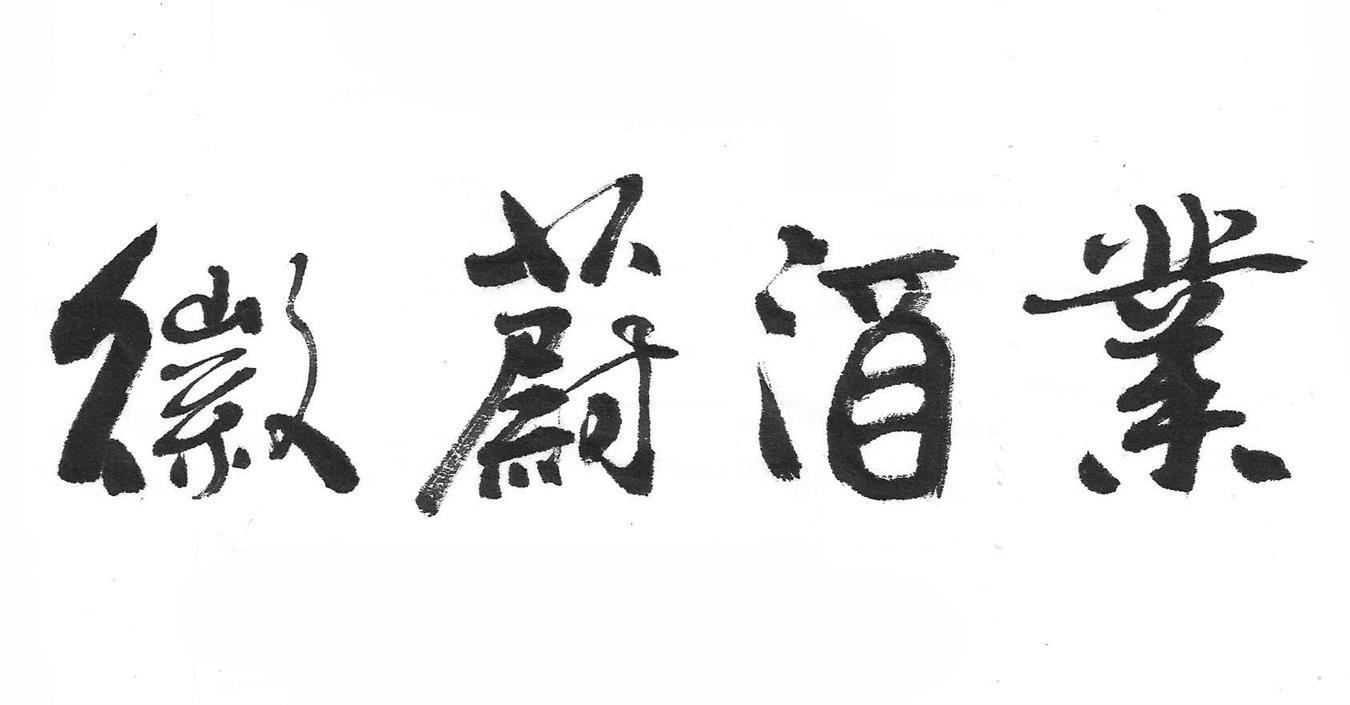 徽蔚酒業